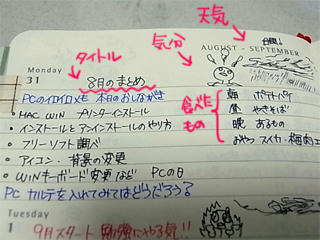 天気
気分
タイトル
AUGUST - SEPTEMBER
Monday
31
8月のまとめ
PCのイロイロメモ 本日のおしながき
食べたもの
朝 ポテトパイ
昼 やきそば
晩 あるもの
おやつ スイカ 梅肉エ
• MAC WIN プリンターインストール
• インストールとアンインストールのやり方
• フリーソフト調べ
• アイコン・背景の変更
• WINキーボード変更など PCの日
PC カルテを入れてみてはどうだろう?
Tuesday
1
9月スタート 勉強にやる気!!